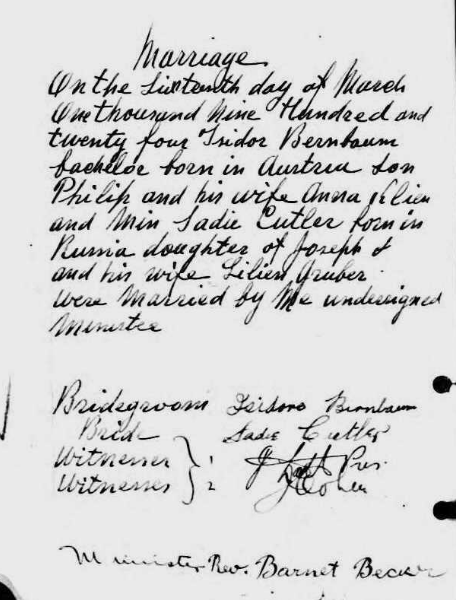 Marriage
On the Sixteenth day of March
One thousand Nine Hundred and
twenty four Isidor Bernbaum
bachelor born in Austria son
Philip and his wife Anna Klien
and Miss Sadie Cutler born in
Russia daughter of Joseph &
and his wife Lilien Gruber
were Married by Me undersigned
Minister
Bridegroom Isidore Bernbaum
Bride Sadie Cutler
Witnesses 1 Pres.
Witnesses 2 J Cohen
Minister Rev. Barnet Becker